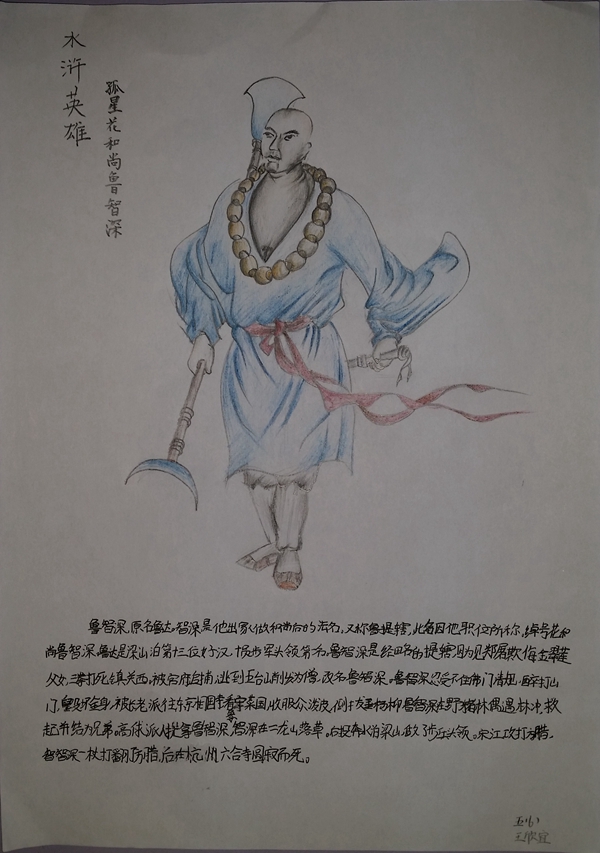 水浒英雄
孤星花和尚鲁智深
鲁智深,原名鲁达,智深是他出家做和尚后的法名,又称鲁提辖,此名因他职位所称,绰号花和
尚鲁智深,鲁达是梁山泊第三位好汉,十步军头领第一名。鲁智深是经略的提辖,因为见郑屠欺侮金翠莲
父女,三拳打死镇关西,被官府追捕,逃到五台山削发为僧,改名鲁智深。鲁智深忍受不住佛门清规,醉打山
门,毁坏金身,被长老派往东京相国寺看守菜园,收服众泼皮,倒拔垂杨柳,鲁智深在野猪林偶遇林冲,救
起并结为兄弟,高俅派人捉拿鲁智深,智深在二龙山落草。后投奔水泊梁山,做了步兵头领。宋江攻打方腊,
鲁智深一杖打翻方腊,后在杭州六合寺圆寂而死。
五(6)